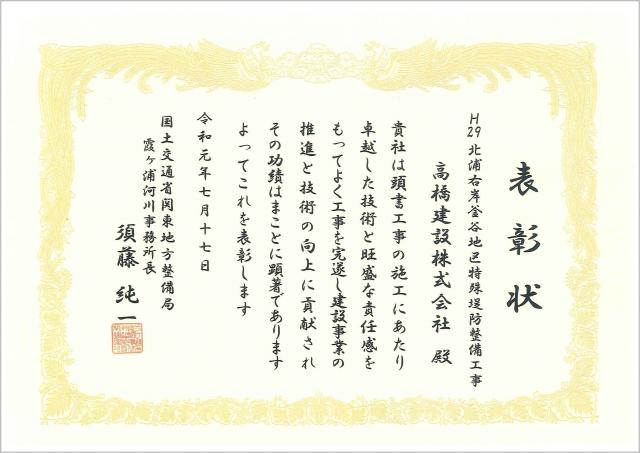 表彰状
H29北浦右岸釜谷地区特殊堤防整備工事
高橋建設株式会社 殿
貴社は頭書工事の施工にあたり
卓越した技術と旺盛な責任感を
もってよく工事を完遂し建設事業の
推進と技術の向上に貢献され
その功績はまことに顕著であります
よってこれを表彰します
令和元年七月十七日
国土交通省関東地方整備局
霞ヶ浦河川事務所長
須藤純一